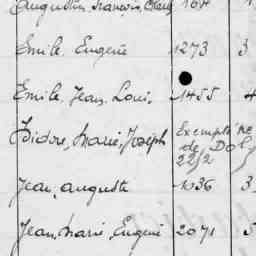 Augustin, François, Charles 164
Emile, Eugène 1273 3
Emile, Jean, Louis, 1455 4
Isidore, Marie, Joseph Exempté
de, D
22/2
Jean, Auguste 1036 3
Jean, Marie, Eugène 2071 5